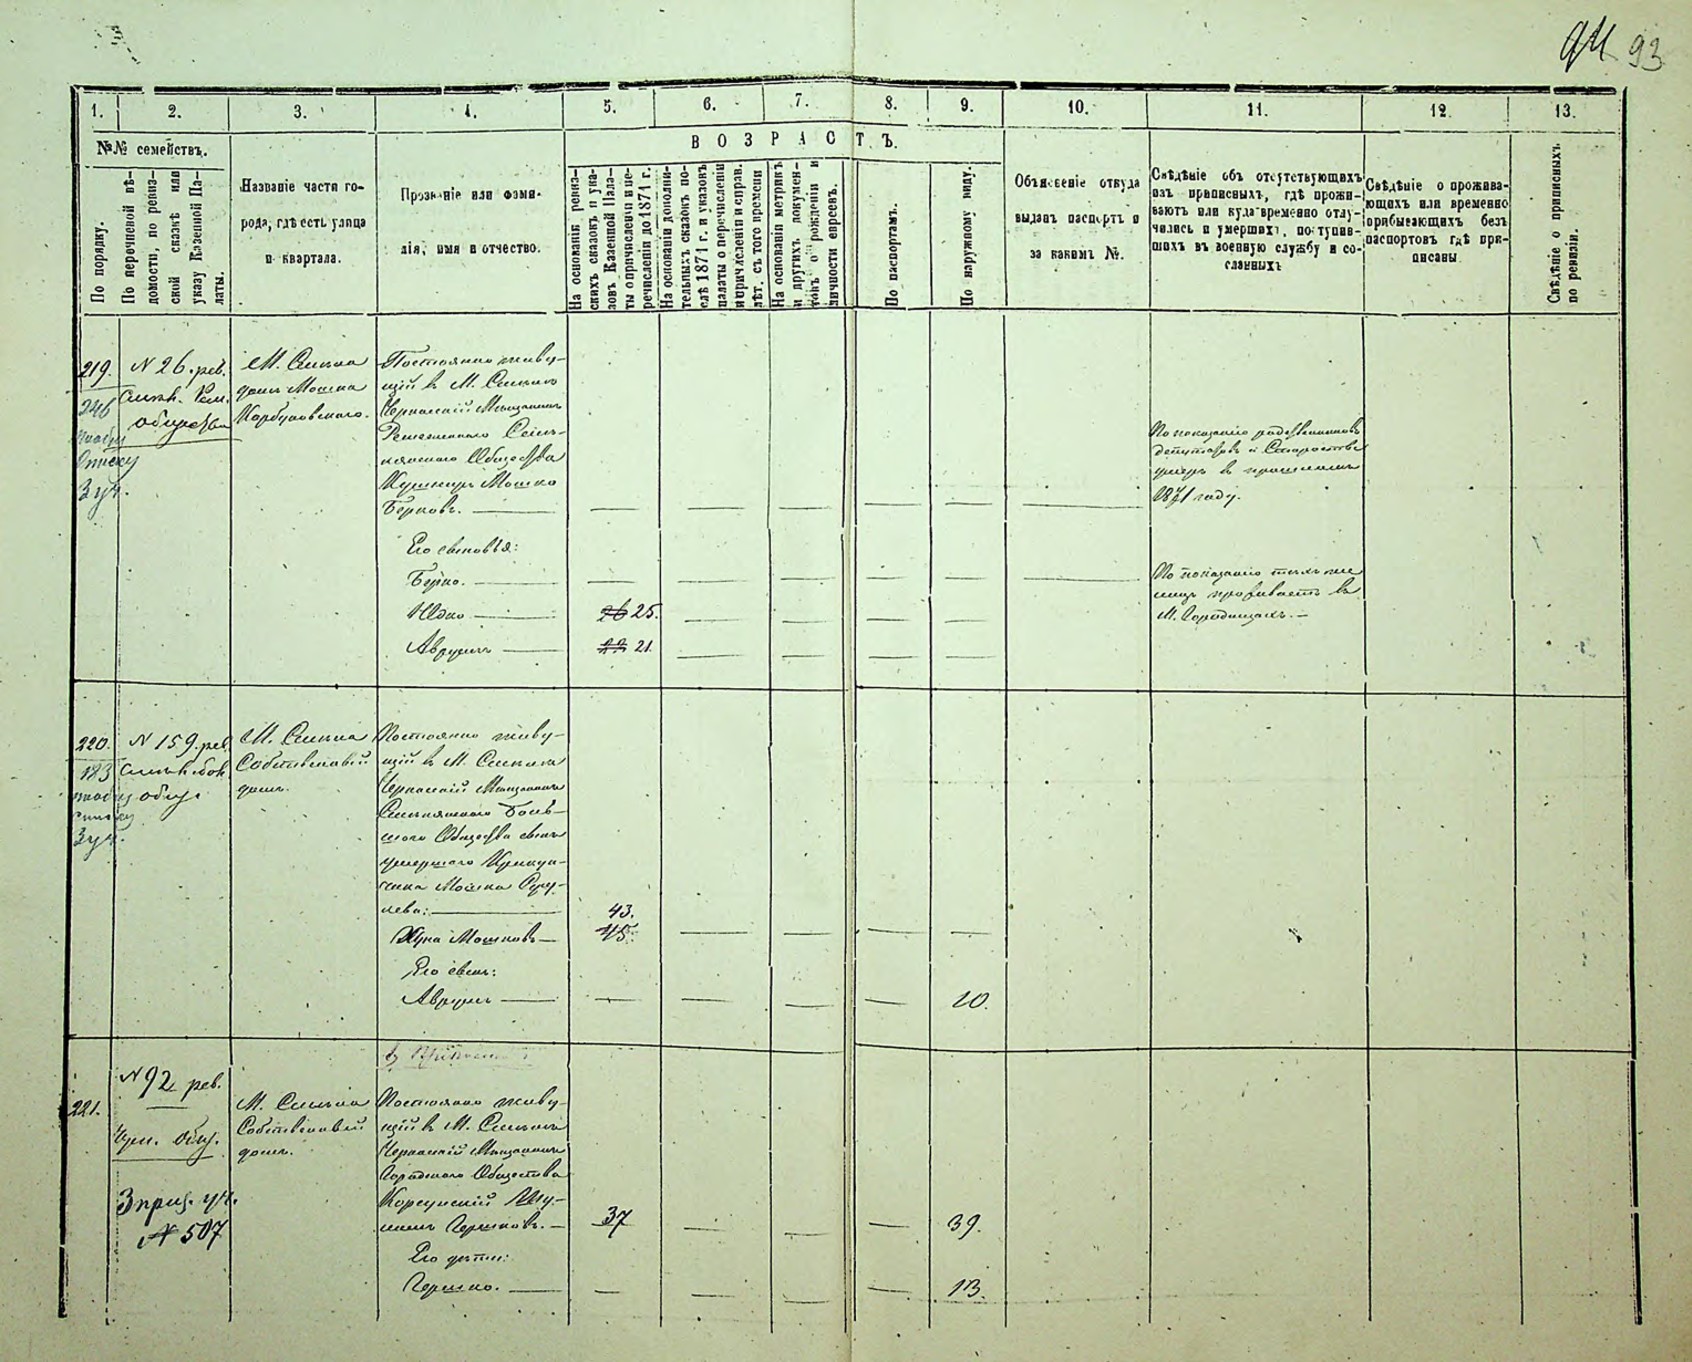 93
1. 2. 3. 4. 5. 6. 7. 8. 9. 10. 11. 12. 13.
№№ семействъ.
По порядку.
По перечневой вѣ-
домости, по ревиз-
ской сказкѣ или
указу Казенной Па-
латы.
Названіе части го-
рода, гдѣ есть улица
и квартала.
Прозваніе или фами-
лія, имя и отчество.
ВОЗРАСТЪ.
На основаніи ревиз-
скихъ сказокъ и ука-
зовъ Казенной Пала-
ты о причисленіи и пе-
речисленіи до 1871 г.
На основаніи дополни-
тельныхъ сказокъ по-
слѣ 1871 г. и указовъ
палаты о перечисленіи
и причисленіи и справ.
лѣт. съ того времени
На основаніи метрикъ
и другихъ докумен-
товъ о рожденіи и
личности евреевъ.
По паспортамъ.
По наружному виду.
Объясненіе откуда
выданъ паспортъ и
за какимъ №.
Свѣдѣніе объ отсутствующихъ
изъ приписныхъ, гдѣ прожи-
ваютъ или куда временно отлу-
чились и умершихъ, поступив-
шихъ въ военную службу и со-
сланныхъ
Свѣдѣніе о прожива-
ющихъ или временно
прибывающихъ безъ
паспортовъ гдѣ при-
писаны
Свѣдѣніе о приписныхъ
по ревизіи.
219.
246
3 уч.
N 26. рев.
общества
М. Смѣла
домъ Мошка
Постоянно живу-
щій въ М. Смѣла
Черкаскій Мѣщанинъ
Общества
Кушниръ Мошко
Берковъ.
По показанію родственниковъ
депутатовъ и Старосты
умеръ въ прошломъ
1871 году.
Его сыновья:
Берко.
Юдко 26 25.
Аврумъ 22 21
По показанію тѣхъ же
лицъ проживаетъ въ
М. Городищахъ.
220.
183
3 уч.
N 159. рев.
общ.
М. Смѣла
Собственный
домъ.
Постоянно живу-
щій въ М. Смѣла
Черкаскій Мѣщанинъ
Смѣлянскаго Боль-
шого Общества сынъ
умершаго
Мошка Сру-
лева:
43.
Хуна Мошковъ 45.
Его сынъ:
Аврумъ 20.
221.
N 92 рев.
общ.
3 приз. уч.
N 507
М. Смѣла
Собственный
домъ.
Постоянно живу-
щій въ М. Смѣла
Черкаскій Мѣщанинъ
Городского Общества
Корсунскій Шу-
лимъ Гершковъ. 37 39.
Его дѣти:
Гершко. 13.